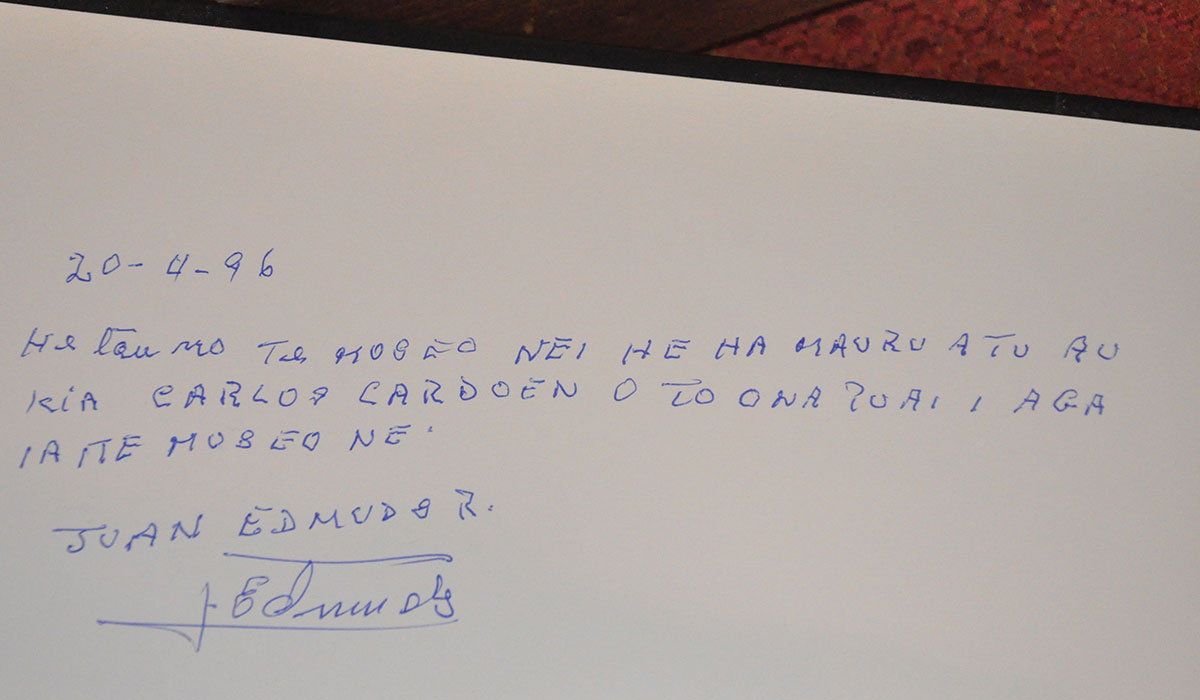 20-4-96
He tau mo Te MOSEO NEI HE HA MAURU ATU AU
KIA CARLOS CARDOEN O TO ONA PUAI I AGA
IA ITE MUSEO NE
JUAN EDMUDS R.
J Edmunds